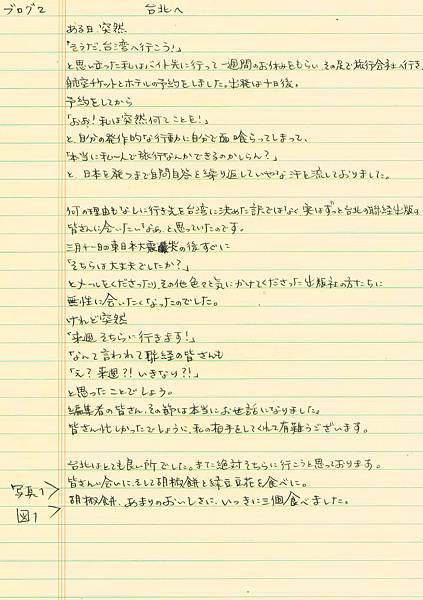 ブログ2
台北へ
ある日、突然
「そうだ、台湾へ行こう!」
と思い立った私はバイト先に行って一週間のお休みをもらい、その足で旅行会社へ行き、
航空チケットとホテルの予約をしました。出発は十日後。
予約をしてから
「おお!私は突然何てことを!」
と、自分の発作的な行動に自分で面喰らってしまって、
「本当に私一人で旅行なんかできるのかしらん?」
と、日本を発つまで自問自答を繰り返していやな汗を流しておりました。
何の理由もなしに行き先を台湾に決めた訳ではなく、実はずっと台北の聯経出版の
皆さんに会いたいなあ、と思っていたのです。
三月十一日の東日本大震災の後すぐに
「そちらは大丈夫でしたか?」
とメールをくださったり、その他色々と気にかけてくださった出版社の方たちに
無性に会いたくなったのでした。
けれど突然
「来週そちらに行きます!」
なんて言われて聯経の皆さんも
「え?来週?!いきなり?!」
と思ったことでしょう。
編集者の皆さん、その節は本当にお世話になりました。
皆さん忙しかったでしょうに、私の相手をしてくれて有難うございます。
台北はとても良い所でした。また絶対そちらに行こうと思っております。
写真1> 皆さんに会いに、そして胡椒餅と緑豆豆花を食べに。
図1> 胡椒餅、あまりのおいしさに、いっきに三個食べました。